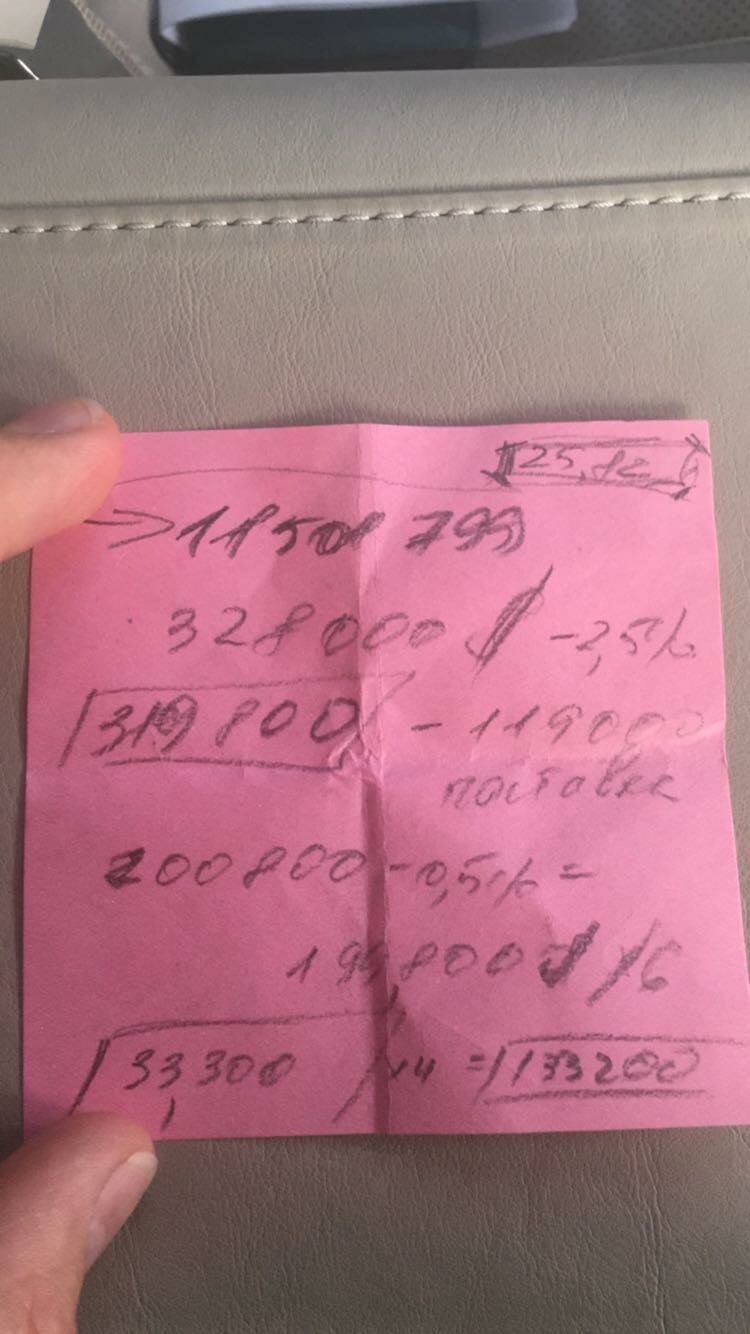 25,82
→ 11501 799
328000 $ -2,5%
319800 - 119000
поставка
200800 - 0,5% =
199800 $ /6
33,300 x4 = 133200